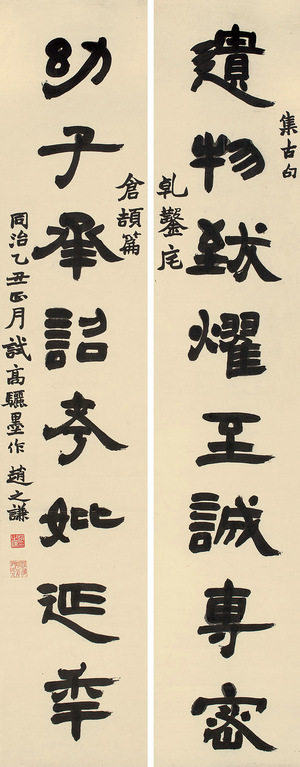 集古句
遺物致燿至誠專密
乹鑿度
倉頡篇
幼子承詔考妣延年
同治乙丑正月試高驪墨作趙之謙